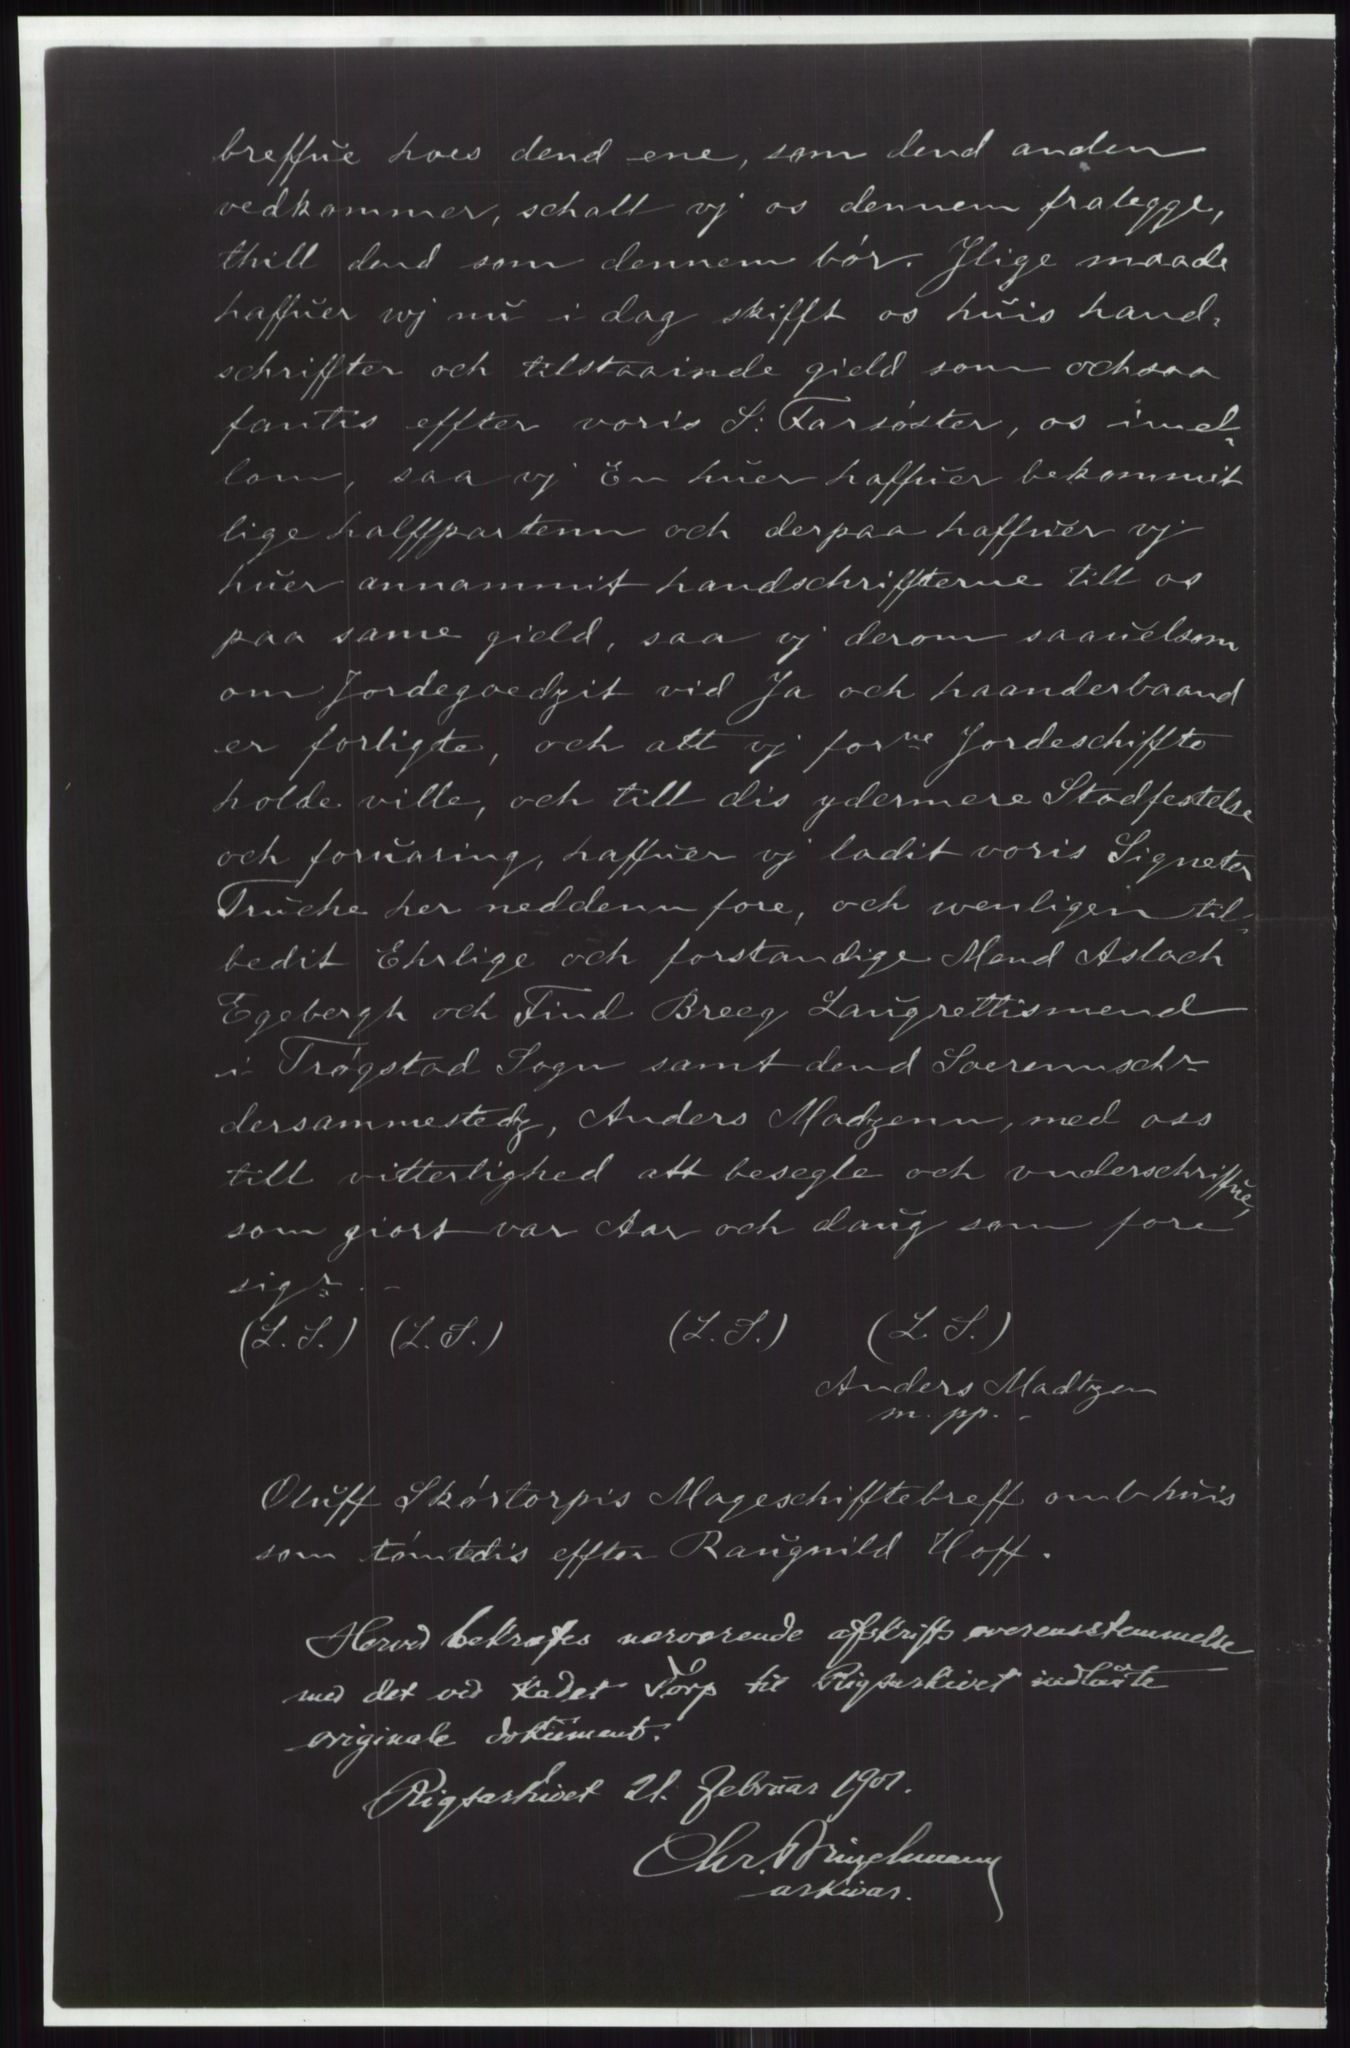 breffue hoes dend ene, som dend anden
vedkommer, schall vj os dennem fralegge,
thill dend som dennem bør. Jlige maade
haffuer wj nu i dag skifft os huis hand-
schriffter och tilstaainde gield som ochsaa
fantis effter voris S: Farsøster, os imel-
lom, saa vj En huer haffuer bekommit
lige halffpartenn och derpaa haffuer vj
huer annammit handschriffterne till os
paa same gield, saa vj derom saauelsom
om Jordegoedzit vid Ja och haanderbaand
er forligte, och att vj forne Jordeschiffte
holde ville, och till dis ydermere Stadfestelse
och foruaring, haffuer vj ladit voris Signeter
Trüche her neddenn fore, och wenligen til-
bedit Ehrlige och forstandige Mend Aslach
Egebergh och Find Breeg Laugrettismend
i Trøgstad Sogn samt dend Soerennschr
dersammestedz, Anders Madzenn, med oss
till vitterlighed att besegle och vnderschriffue,
som giort var Aar och daug som fore
sigr. -
(L. S.) (L. S.) (L. S.) (L. S.)
Anders Madtzen
m. pp. -
Oluff Skørtorpis Mageschifftebreff omb huis
som tømtedis effter Raugnild Hoff.
Herved bekræftes nærværende afskrifts overensstemmelse
med det ved Kadet Torp til Rigsarkivet indlaante
originale dokument.
Rigsarkivet 21. Februar 1901.
Chr. Brinchmann
arkivar.